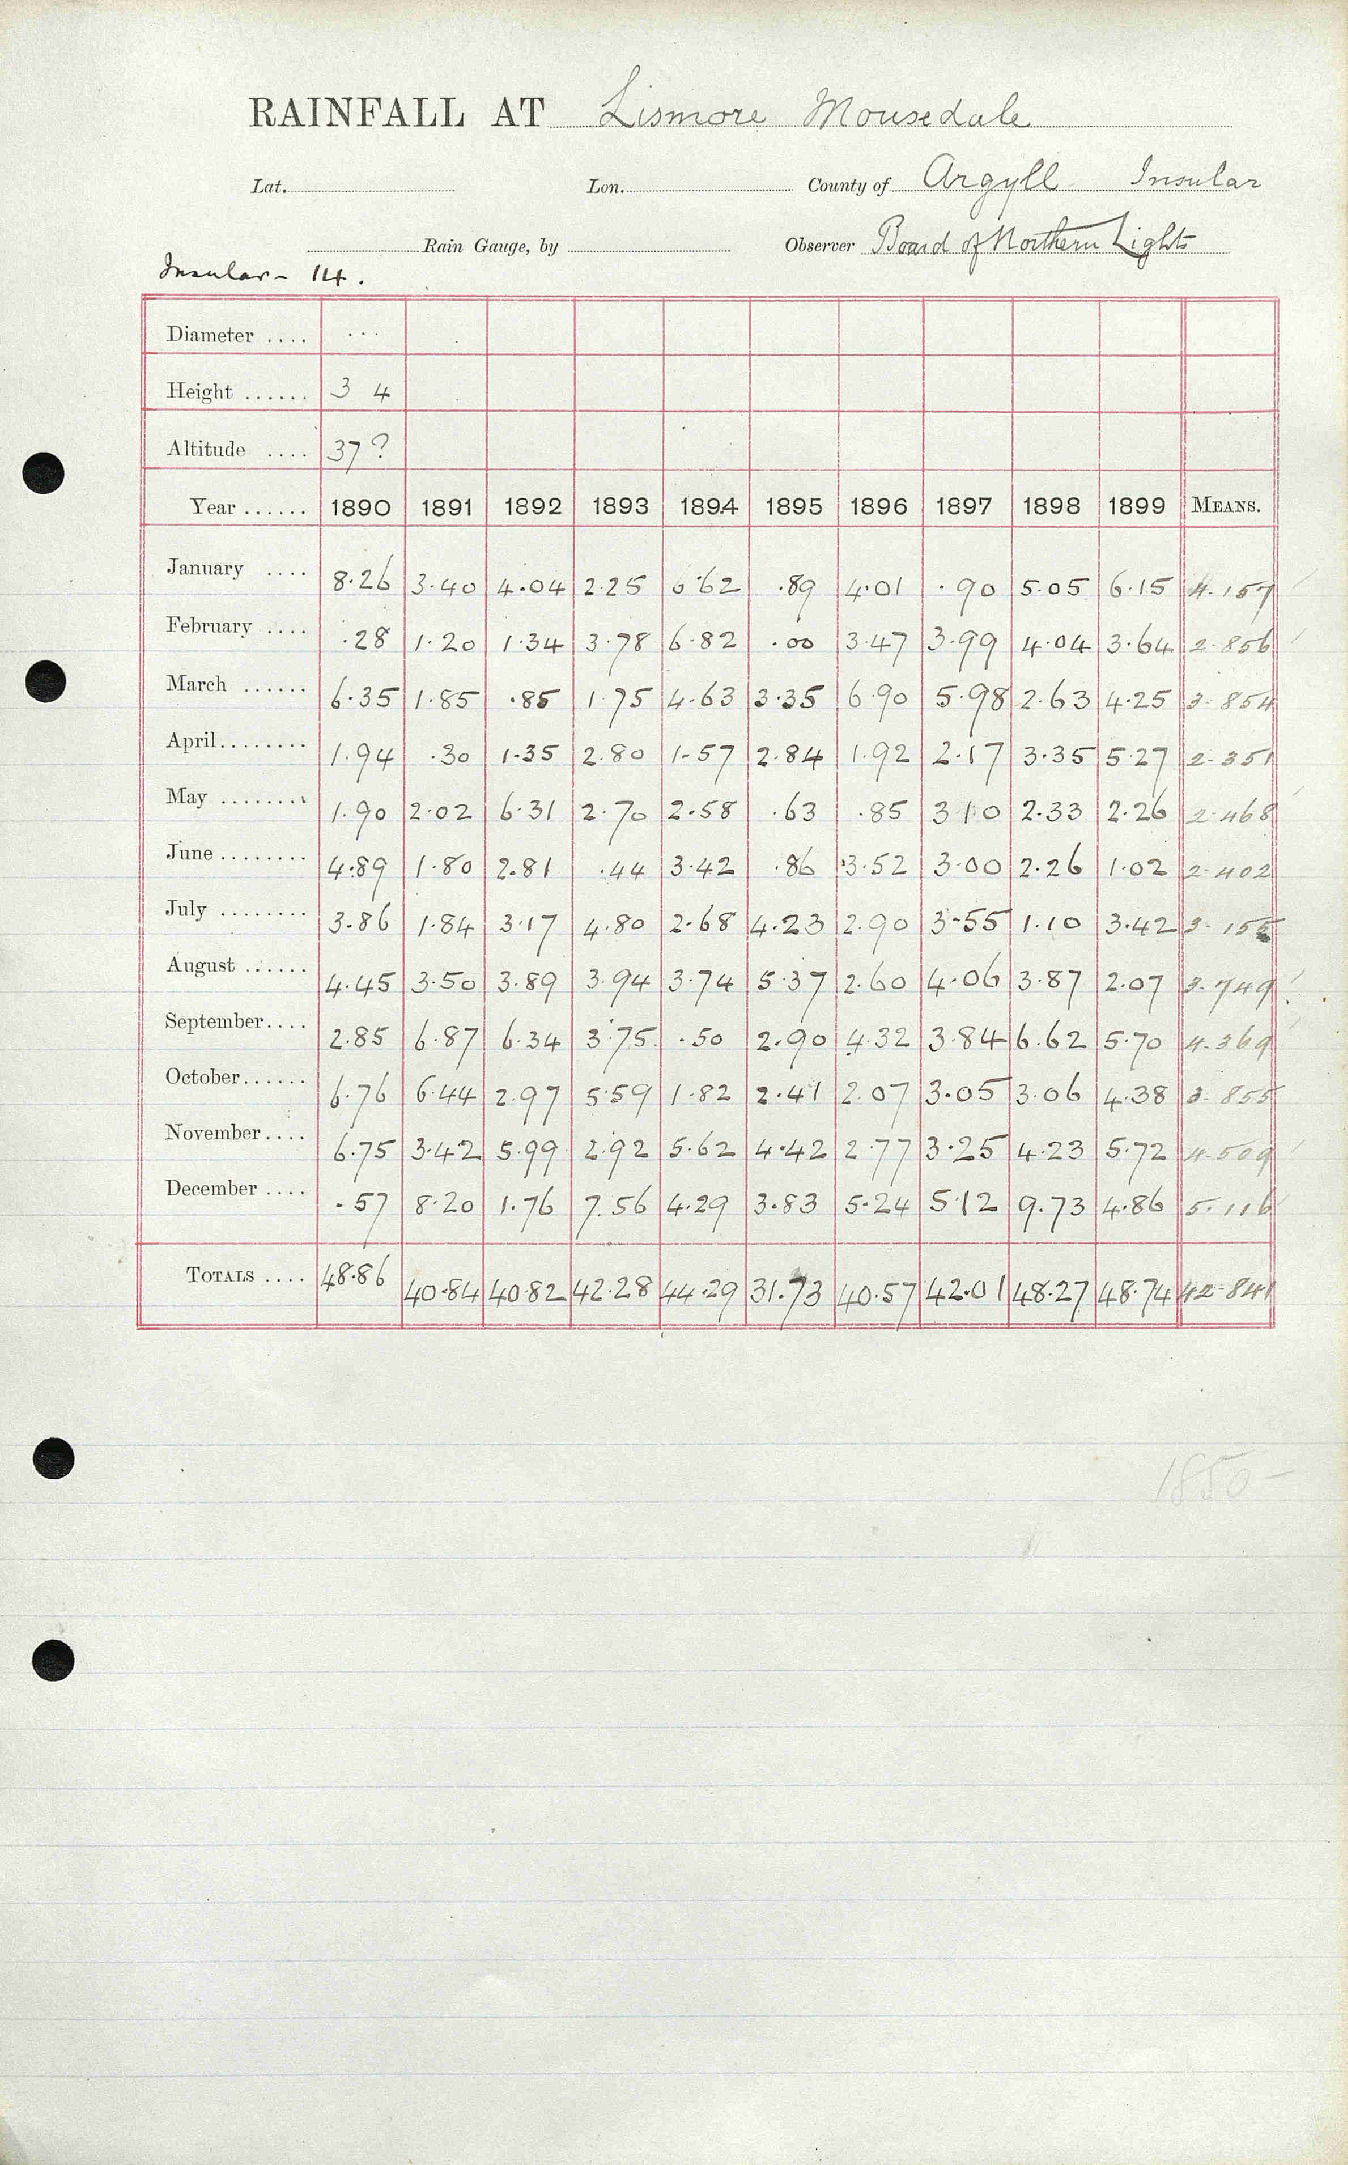 RAINFALL AT Lismore Mousedale
Lat. Lon. County of Argyll Insular
Rain Gauge, by Observer Board of Northern Lights
Insular - 14.
Diameter .... ...
Height ...... 3 4
Altitude .... 37?
Year ...... 1890 1891 1892 1893 1894 1895 1896 1897 1898 1899 MEANS.
January .... 8.26 3.40 4.04 2.25 6.62 .89 4.01 .90 5.05 6.15 4.157
February .... .28 1.20 1.34 3.78 6.82 .00 3.47 3.99 4.04 3.64 2.856
March ...... 6.35 1.85 .85 1.75 4.63 3.35 6.90 5.98 2.63 4.25 3.854
April........ 1.94 .30 1.35 2.80 1.57 2.84 1.92 2.17 3.35 5.27 2.351
May ........ 1.90 2.02 6.31 2.70 2.58 .63 .85 3.10 2.33 2.26 2.468
June ........ 4.89 1.80 2.81 .44 3.42 .86 3.52 3.00 2.26 1.02 2.402
July ........ 3.86 1.84 3.17 4.80 2.68 4.23 2.90 3.55 1.10 3.42 3.155
August ...... 4.45 3.50 3.89 3.94 3.74 5.37 2.60 4.06 3.87 2.07 3.749
September.... 2.85 6.87 6.34 3.75 .50 2.90 4.32 3.84 6.62 5.70 4.369
October...... 6.76 6.44 2.97 5.59 1.82 2.41 2.07 3.05 3.06 4.38 3.855
November.... 6.75 3.42 5.99 2.92 5.62 4.42 2.77 3.25 4.23 5.72 4.509
December .... .57 8.20 1.76 7.56 4.29 3.83 5.24 5.12 9.73 4.86 5.116
TOTALS .... 48.86 40.84 40.82 42.28 44.29 31.73 40.57 42.01 48.27 48.74 42.841
1850-